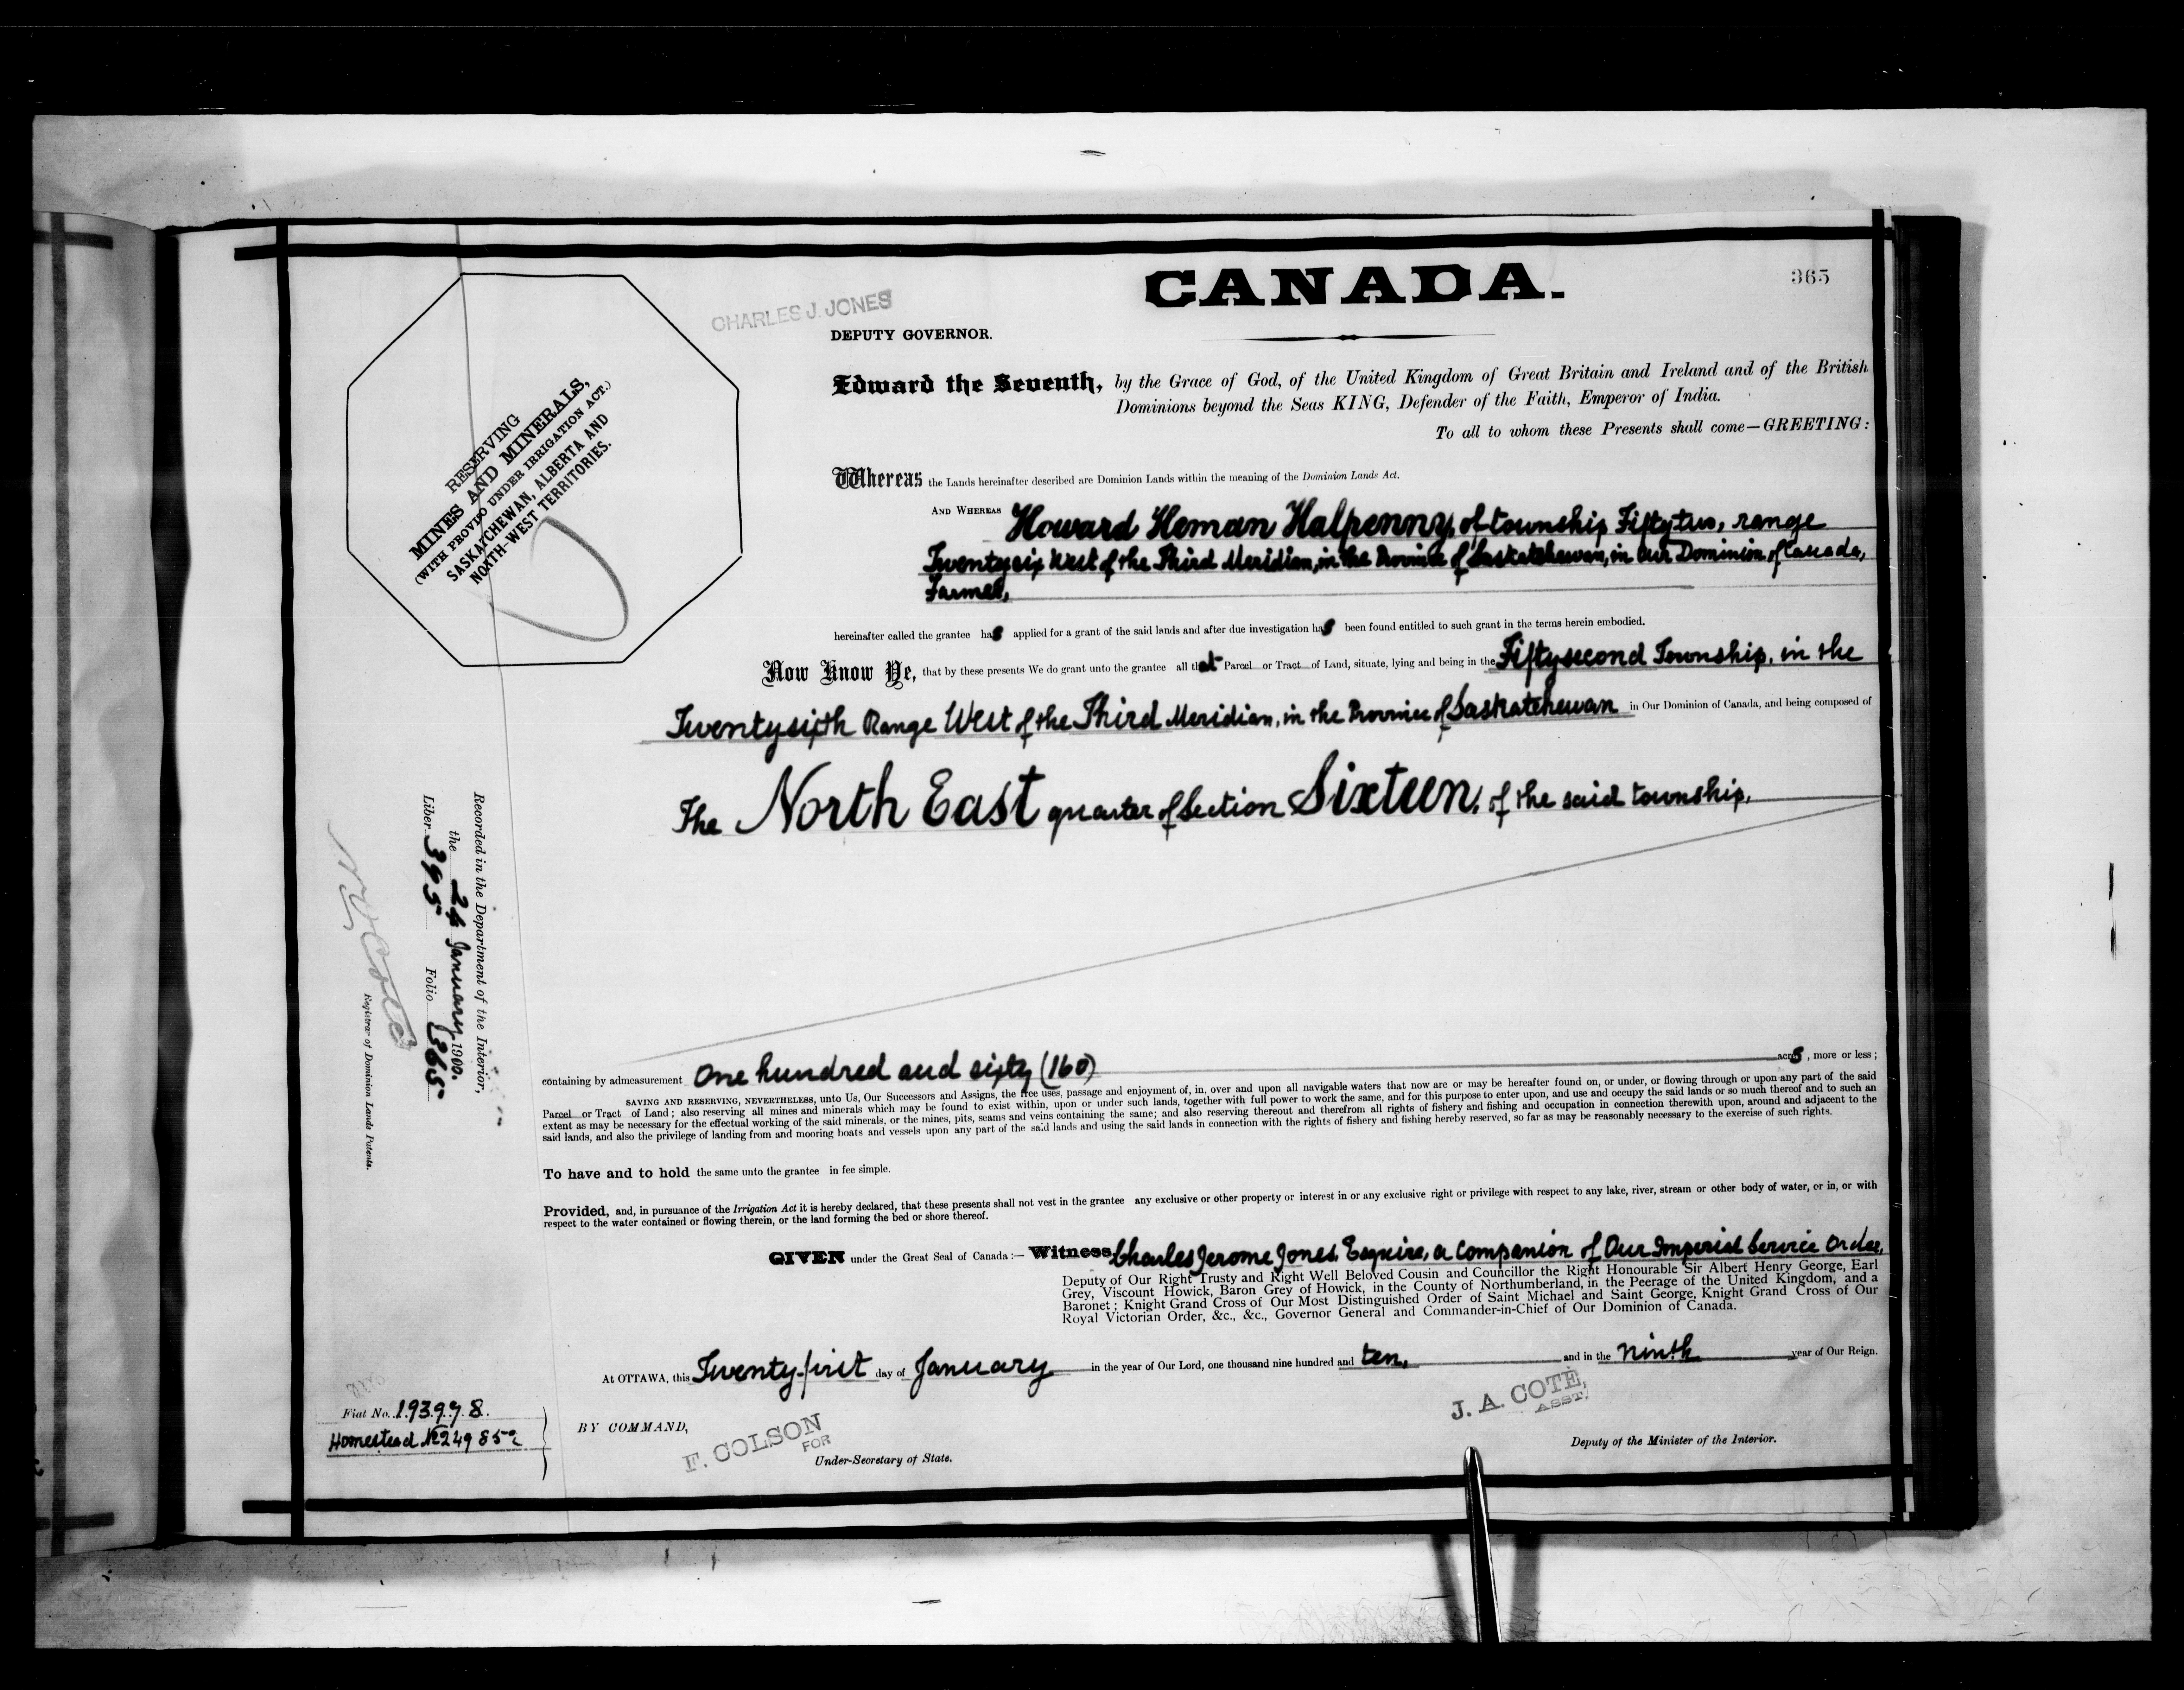 CANADA.
365
CHARLES J. JONES
DEPUTY GOVERNOR.
RESERVING
MINES AND MINERALS,
(WITH PROVISO UNDER IRRIGATION ACT.)
SASKATCHEWAN, ALBERTA AND
NORTH-WEST TERRITORIES.
Edward the Seventh, by the Grace of God, of the United Kingdom of Great Britain and Ireland and of the British
Dominions beyond the Seas KING, Defender of the Faith, Emperor of India.
To all to whom these Presents shall come—GREETING:
Whereas the Lands hereinafter described are Dominion Lands within the meaning of the Dominion Lands Act.
AND WHEREAS Howard Heman Halpenny, of township Fiftytwo, range
Twentysix West of the Third Meridian, in the Province of Saskatchewan, in Our Dominion of Canada,
Farmer,
hereinafter called the grantee has applied for a grant of the said lands and after due investigation has been found entitled to such grant in the terms herein embodied.
Now Know Ye, that by these presents We do grant unto the grantee all that Parcel or Tract of Land, situate, lying and being in the Fiftysecond Township, in the
Twentysixth Range West of the Third Meridian, in the Province of Saskatchewan in Our Dominion of Canada, and being composed of
The North East quarter of Section Sixteen, of the said township,
Recorded in the Department of the Interior,
the 24 January 1900.
Liber 395 Folio 365
Registrar of Dominion Lands Patents.
containing by admeasurement One hundred and sixty (160) acres, more or less;
SAVING AND RESERVING, NEVERTHELESS, unto Us, Our Successors and Assigns, the free uses, passage and enjoyment of, in, over and upon all navigable waters that now are or may be hereafter found on, or under, or flowing through or upon any part of the said
Parcel or Tract of Land; also reserving all mines and minerals which may be found to exist within, upon or under such lands, together with full power to work the same, and for this purpose to enter upon, and use and occupy the said lands or so much thereof and to such an
extent as may be necessary for the effectual working of the said minerals, or the mines, pits, seams and veins containing the same; and also reserving thereout and therefrom all rights of fishery and fishing and occupation in connection therewith upon, around and adjacent to the
said lands, and also the privilege of landing from and mooring boats and vessels upon any part of the said lands and using the said lands in connection with the rights of fishery and fishing hereby reserved, so far as may be reasonably necessary to the exercise of such rights.
To have and to hold the same unto the grantee in fee simple.
Provided, and, in pursuance of the Irrigation Act it is hereby declared, that these presents shall not vest in the grantee any exclusive or other property or interest in or any exclusive right or privilege with respect to any lake, river, stream or other body of water, or in, or with
respect to the water contained or flowing therein, or the land forming the bed or shore thereof.
GIVEN under the Great Seal of Canada:— Witness, Charles Jerome Jones, Esquire, a Companion of Our Imperial Service Order,
Deputy of Our Right Trusty and Right Well Beloved Cousin and Councillor the Right Honourable Sir Albert Henry George, Earl
Grey, Viscount Howick, Baron Grey of Howick, in the County of Northumberland, in the Peerage of the United Kingdom, and a
Baronet; Knight Grand Cross of Our Most Distinguished Order of Saint Michael and Saint George, Knight Grand Cross of Our
Royal Victorian Order, &c., &c., Governor General and Commander-in-Chief of Our Dominion of Canada.
At OTTAWA, this Twenty-first day of January in the year of Our Lord, one thousand nine hundred and ten, and in the ninth year of Our Reign.
Fiat No. 193978.
Homestead No
BY COMMAND,
F. COLSON
FOR
Under-Secretary of State.
J. A. COTÉ,
ASST.
Deputy of the Minister of the Interior.